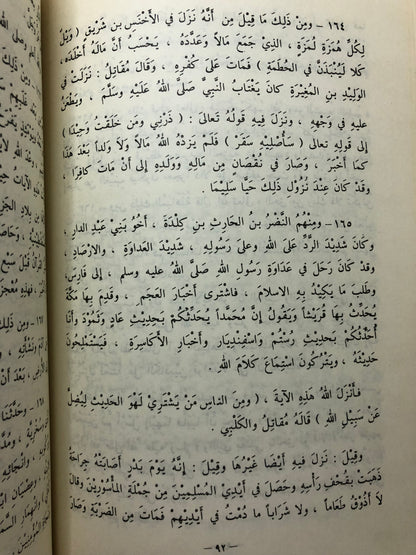 ١٦٤ - ومِنْ ذَلِكَ مَا قِيْلَ مِن أَنَّهُ نَزَلَ في الأَخْنَسِ بنِ شَرِيق ( وَيْلٌ
لِكُلِّ هُمَزَةٍ لُمَزَة ، الذي جَمَعَ مَالاً وَعَدَّدَهُ ، يَحْسَبُ أَنَّ مَالَهُ أَخْلَدَه ،
كَلَّا لَيُنْبَذَنَّ في الحُطَمة ) فَمَاتَ عَلَى كُفْرِهِ ، وقَالَ مُقَاتِلُ : نَزَلَتْ في
الوَلِيدِ بنِ المُغِيْرَةِ كَانَ يَغْتَابُ النَّبِيَّ صَلَّى اللهُ عَلَيْهِ وَسَلَّمَ ، ويَطْعَنُ
عليه في وَجْهِهِ ، ونَزَلَ فيه قَوْلُهُ تَعَالى ( ذَرْني ومَن خَلَقْتُ وَحِيْدًا )
إلى قَوْلِهِ تَعالَى ( سَأُصْلِيهِ سَقَرْ ) فَلَمْ يَزِدْهُ اللهُ مَالاً ولاَ وَلَداً بَعْدَ هَذا
كما أَخْبَرَ ، وَصَارَ في نُقْصَانٍ مِن مَالِهِ وَوَلَدِهِ إِلى أَنْ مَاتَ كافِرًا ،
وقَدْ كَانَ عِنْدَ نُزُولِ ذلك حَيّاً سَلِيْمًا .
١٦٥ - ومِنْهُم النَّضْرُ بنُ الحَارثِ بن كِلْدَةَ ، أَخُو بَني عَبدِ الدارِ ،
وكانَ شَدِيْدَ الرَّدِّ عَلَى اللهِ وعلى رَسُولِهِ ، شَدِيْدَ العَدَاوَةِ ، والارْصَادِ ،
وقد كانَ رَحَلَ في عَدَاوَةِ رَسُولِ اللهِ صَلَّى اللهُ عليه وسلم ، إلى فَارِسَ ،
وطَلَبَ مَا يَكِيْدُ بِهِ الاسلامَ ، فَاشْتَرى أَخْبَارَ العَجَمِ ، وقَدِمَ بِهَا مَكَّةَ
يُحَدِّثُ بها قُرَيْشًا ويَقُولُ إِنَّ مُحَمَّداً يُحَدِّثُكُمْ بِحَدِيْثِ عَادٍ وثَمُودَ وَأَنَا
أُحَدِّثُكُمْ بِحَدِيْثِ رُسْتُم واسْفِنْدِيَارَ وأَخْبَارِ الأكاسِرَةِ ، فَيَسْتَمْلِحُونَ
حَدِيْثَهُ ، ويَتْرُكُونَ اسْتِمَاعَ كَلَامَ اللهِ .
فَأَنْزَلَ اللهُ هَذِهِ الآيةَ ، ( ومِنَ الناسِ مَنْ يَشْتَرِي لَهْوَ الحَدِيْثِ لِيُضِلَّ
عَنْ سَبِيْلِ اللهِ ) قَالَهُ مُقَاتِلُ والكَلْبي .
وقِيْلَ : نَزَلَ فيه أَيْضًا غَيْرُهَا وقِيْلَ : إِنَّهُ يَوْمَ بَدَرٍ أَصَابَتْهُ جِرَاحَةٌ
ذَهَبَتْ بِقَحْفِ رَأْسِهِ وحَصَلَ في أَيْدِي المُسْلِمِيْنَ مِن جُمْلَةِ المأْسُورِيْنَ وقَالَ
لَا أَذُوْقُ طَعَاماً ، وَلَا شَرَاباً مَا دُمْتُ في أَيْدِيْهِم فَمَاتَ مِنَ الضَّرْبَةِ وصَارَ
- ٩٢ -